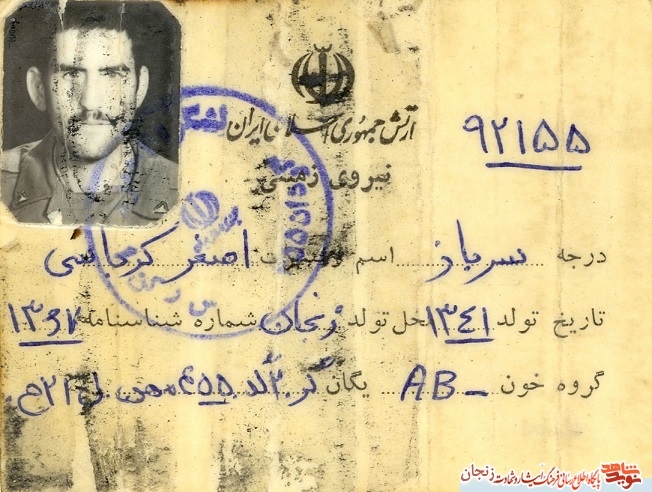 ارتش جمهوری اسلامی ایران
۹۲۱۵۵
نیروی زمینی
درجه سرباز اسم و شهرت اصغر کرباسی
تاریخ تولد ۱۳۴۱ محل تولد زنجان شماره شناسنامه ۱۳۶۷
گروه خون AB- یگان گر ۲ گد
نوید شاهد
پایگاه اطلاع رسانی فرهنگ ایثار و شهادت زنجان